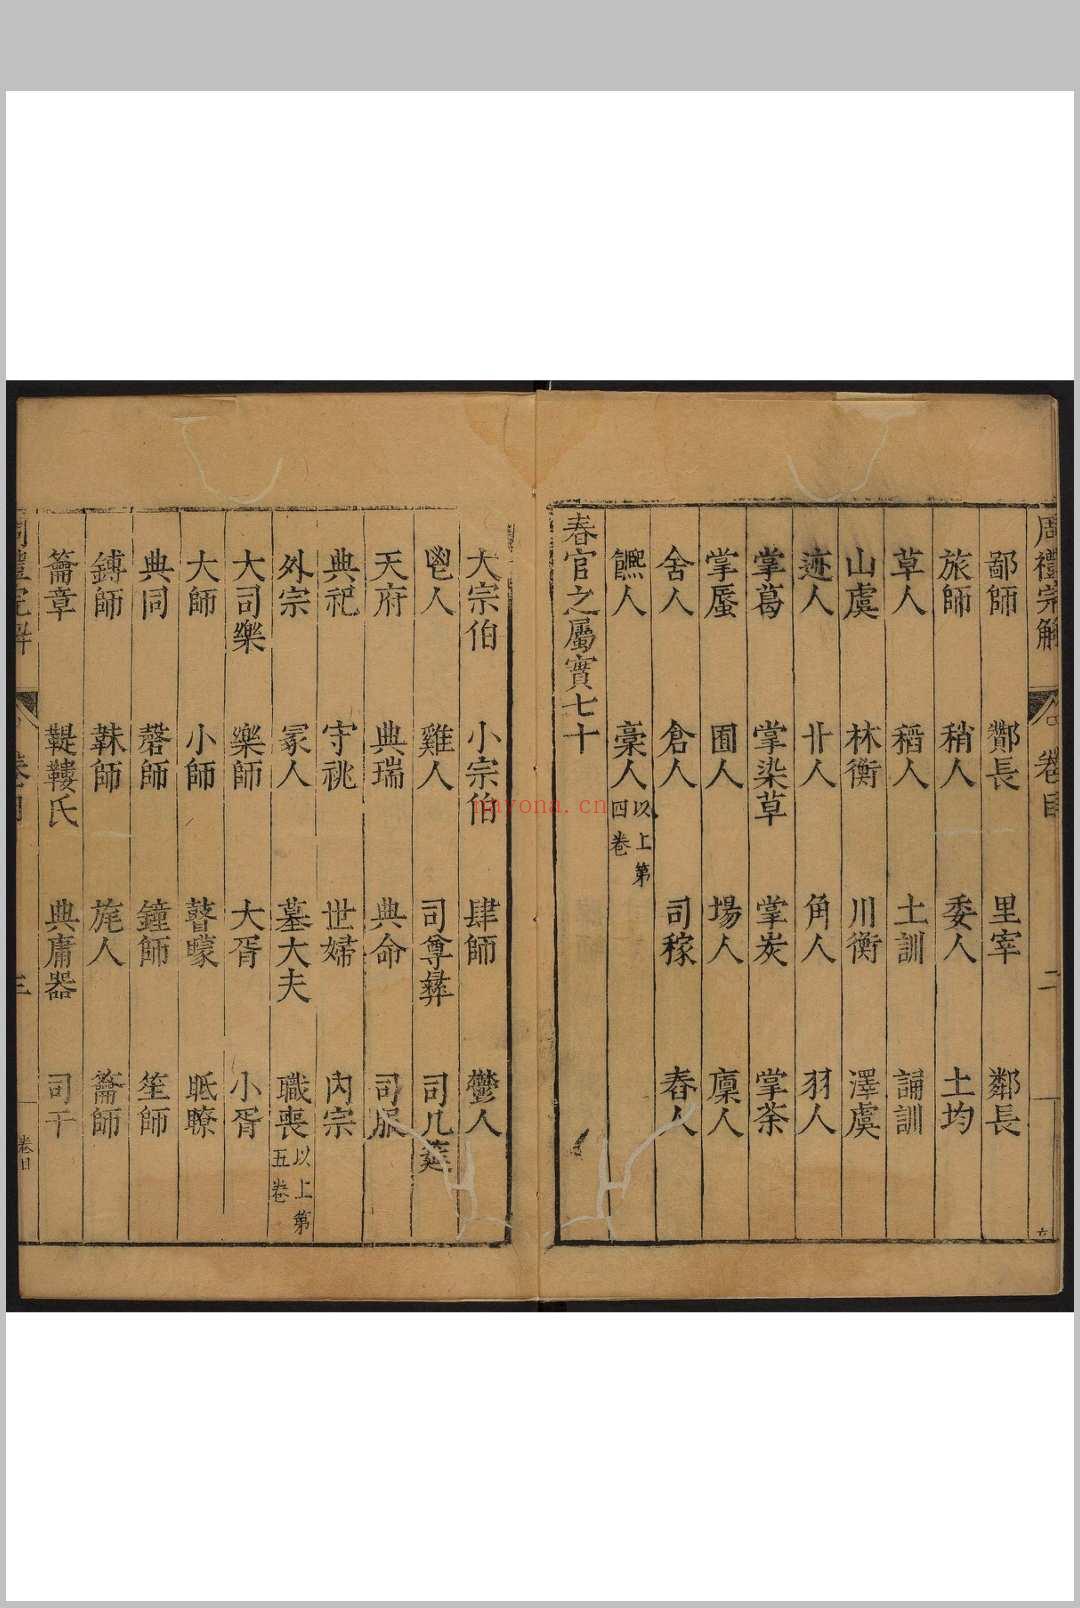 周禮宗解 卷目 二
鄙師 酇長 里宰 鄰長
旅師 稍人 委人 土均
草人 稻人 土訓 誦訓
山虞 林衡 川衡 澤虞
迹人 卝人 角人 羽人
掌葛 掌染草 掌炭 掌荼
掌蜃 囿人 場人 廩人
舍人 倉人 司稼 舂人
饎人 槀人 以上第四卷
春官之屬實七十
大宗伯 小宗伯 肆師 鬱人
鬯人 雞人 司尊彝 司几筵
天府 典瑞 典命 司服
典祀 守祧 世婦 內宗
外宗 冢人 墓大夫 職喪 以上第五卷
大司樂 樂師 大胥 小胥
大師 小師 瞽矇 眂瞭
典同 磬師 鐘師 笙師
鎛師 韎師 旄人 籥師
籥章 鞮鞻氏 典庸器 司干
卷目
nayona.cn